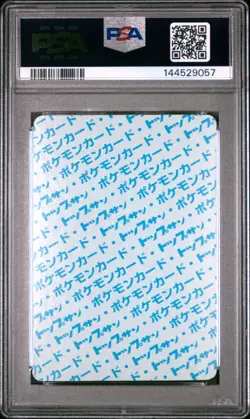 PSA
PSA
144529057
ポケモンカード・
トップサン・
ポケモンカード・
トップサン・
ポケモンカード・
トップサン・
ポケモンカード・
トップサン・
ポケモンカード・
トップサン・
ポケモンカード・
トップサン・
ポケモンカード・
トップサン・
ポケモンカード・